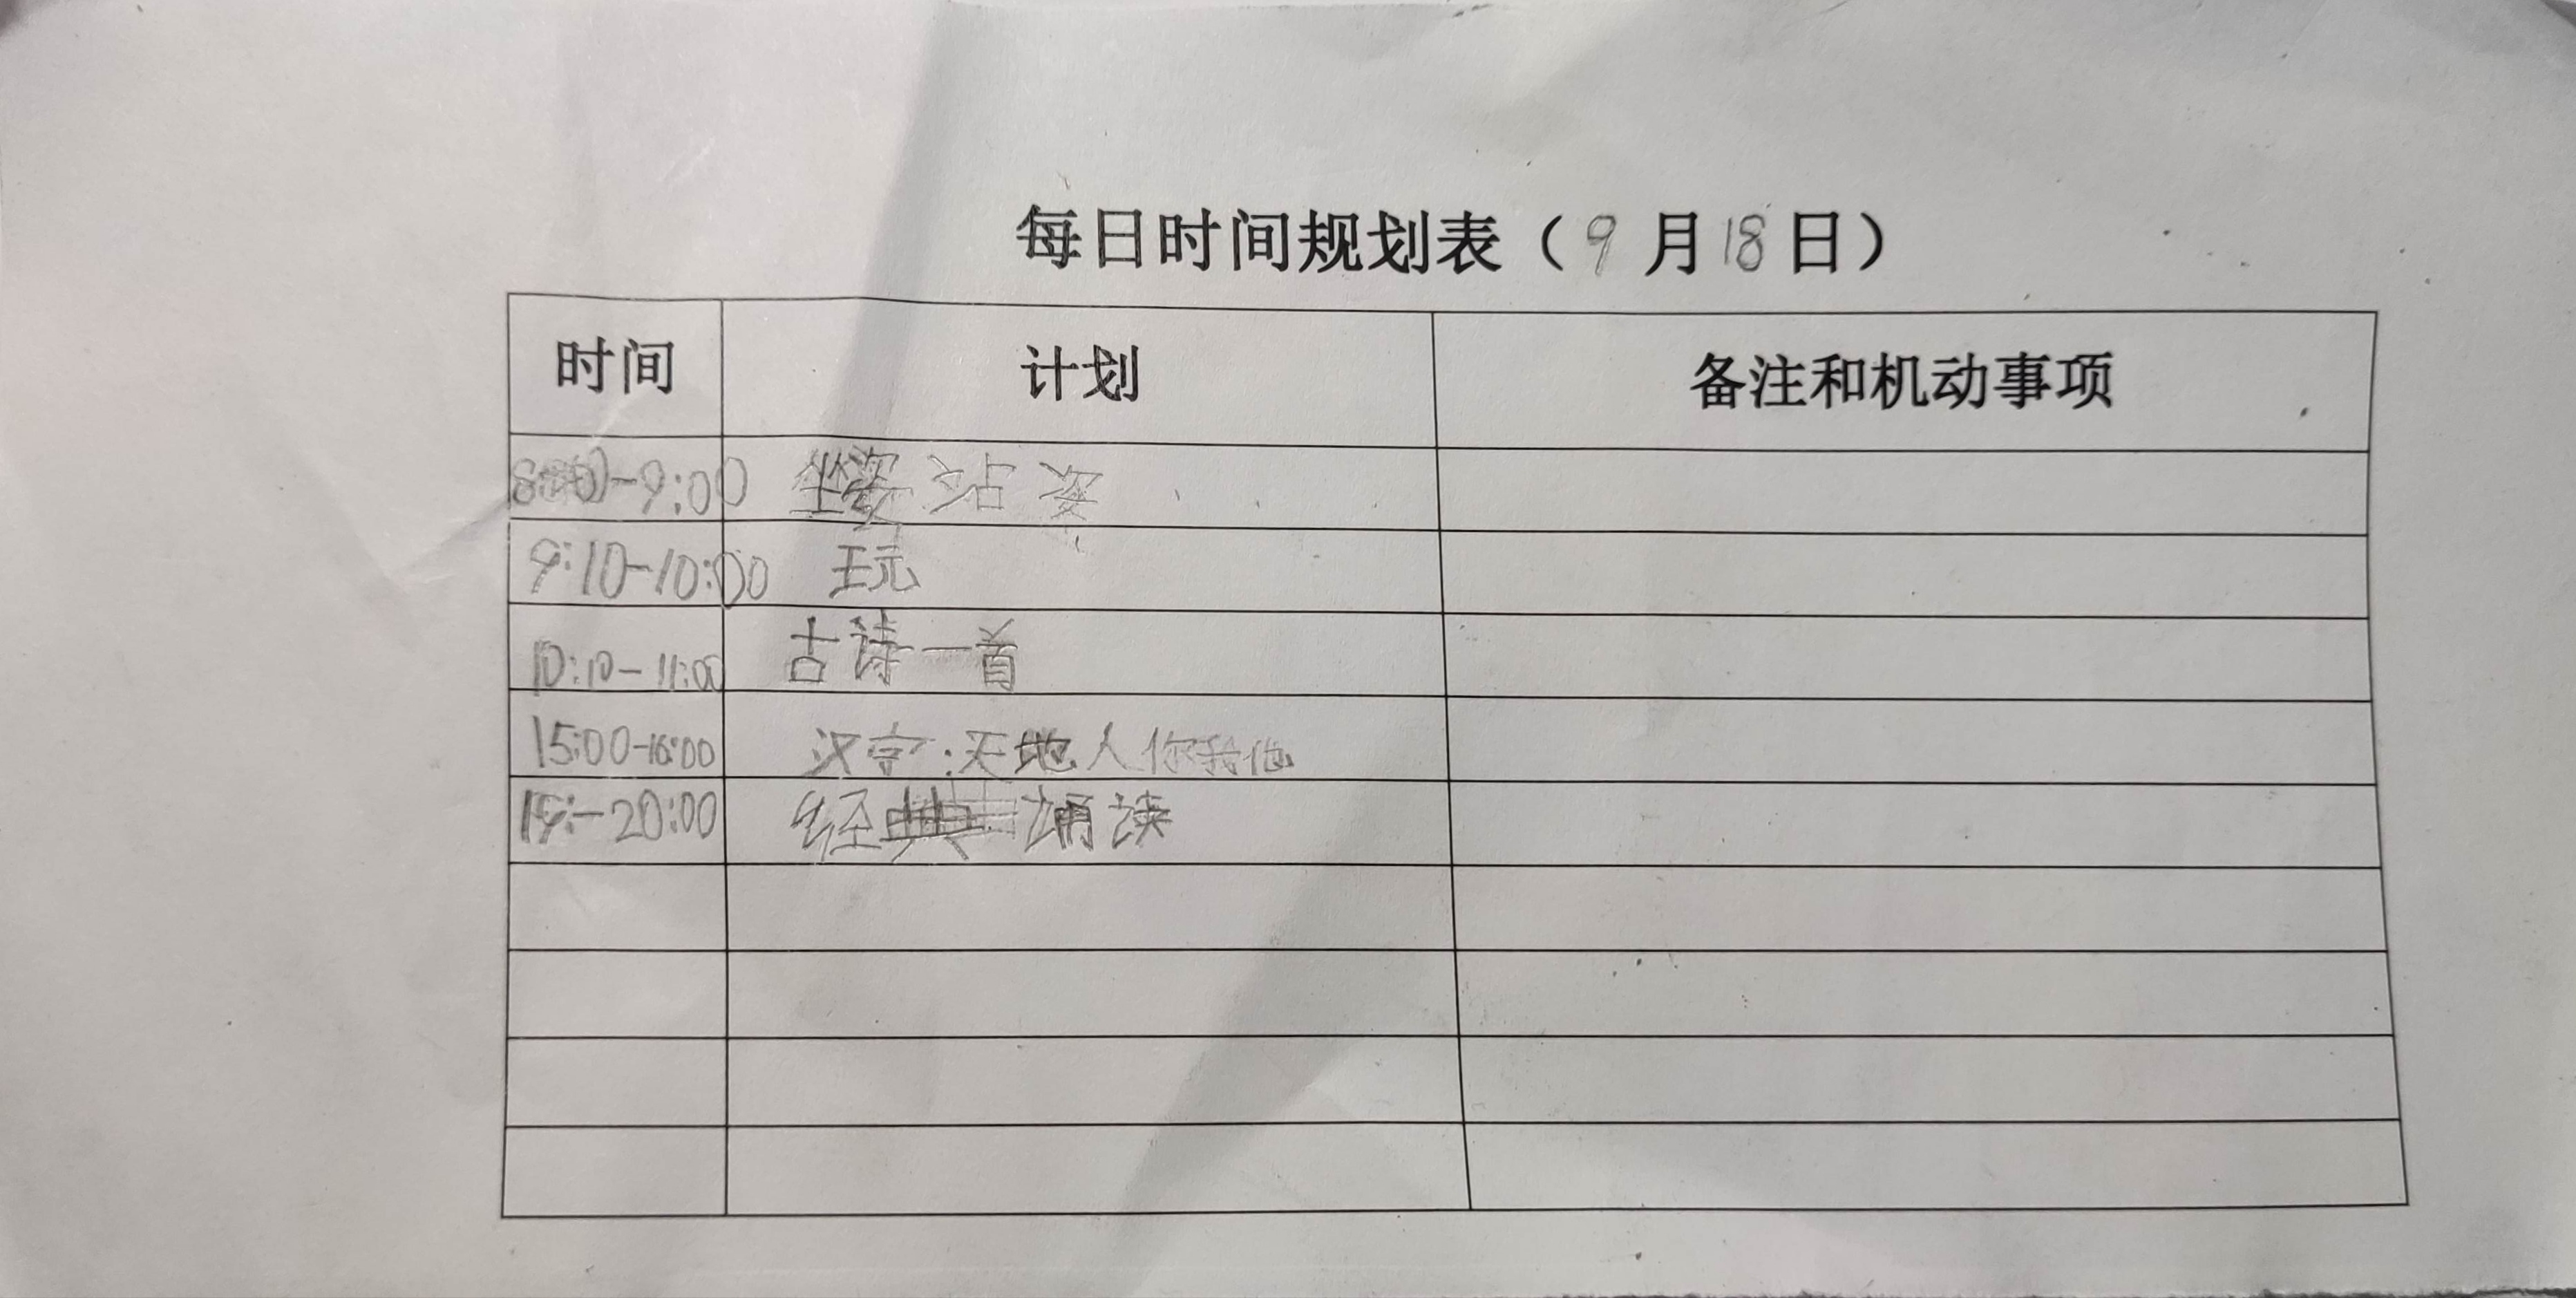 每日时间规划表（9月18日）
时间 计划 备注和机动事项
8:00-9:00 坐姿 站姿
9:10-10:00 玩
10:10-11:00 古诗一首
15:00-16:00 汉字:天地人你我他
19:-20:00 经典诵读